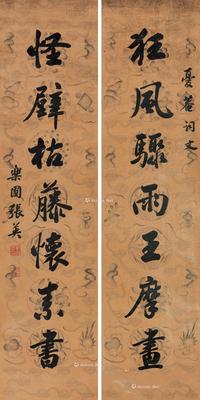 憂菴詞丈
狂風驟雨王摩畫
怪壁枯藤懷素書
樂圃張英